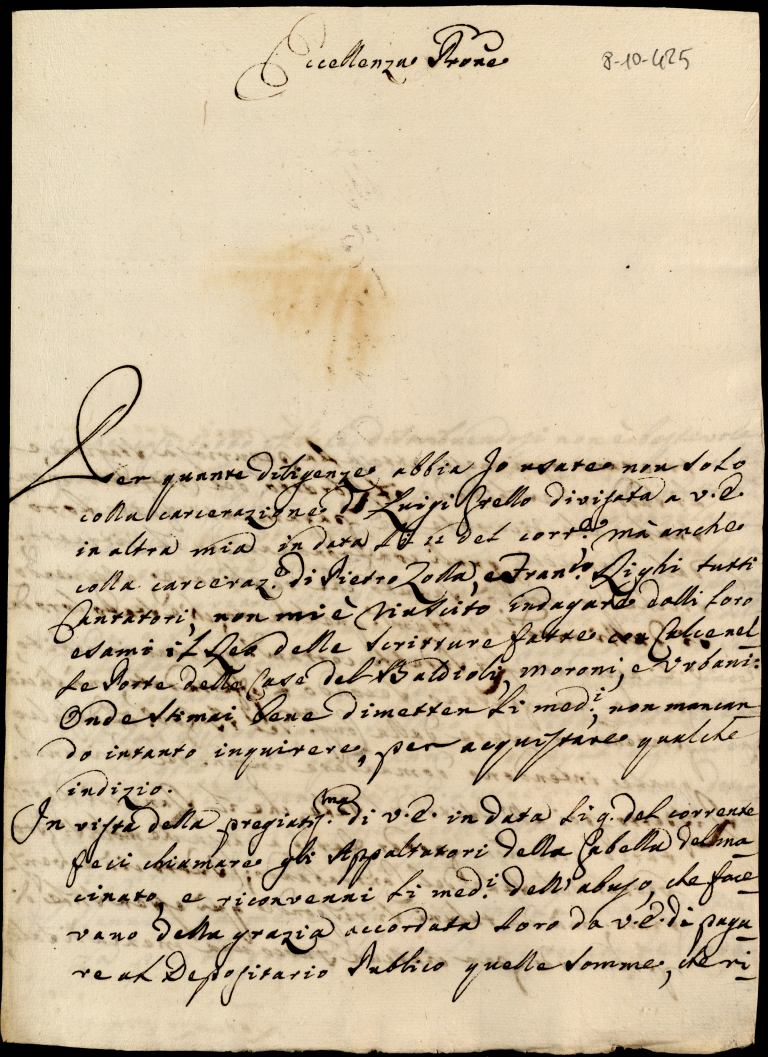 Eccellenza Prone
8-10-425
Per quante diligenze abbia Jo usate non solo
colla carcerazione di Luigi Prello divisata a V.E.
in altra mia in data li 2 del corr.e, mà anche
colla carceraz.e di Pietro Zolla, e Fran.co Righi tutti
Cantatori, non mi è riuscito indagare dalli loro
esami il Reo delle scritture fatte con Calce nel
le Porte delle Case del Baldioli, Moroni, e Urbani:
Onde stimai bene dimetter li med.i, non mancan
do intanto inquirere, per acquistare qualche
indizio.
In vista della pregiatis.ma di V.E. in data li 9. del corrente
feci chiamare gli Appaltatori della Gabella del ma
cinato, e riconvenni li med.i dell'abuso, che face
vano della grazia accordata loro da V.E. di paga
re al Depositario Publico quelle somme, che ri